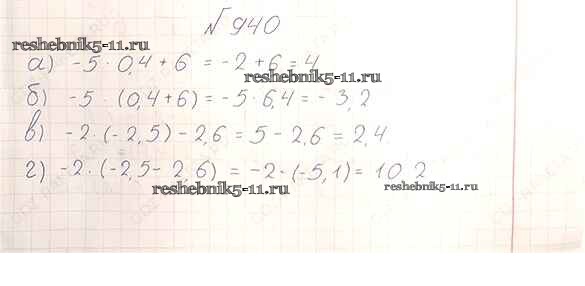 № 940
reshebnik5-11.ru
а) -5 · 0,4 + 6 = -2 + 6 = 4
reshebnik5-11.ru
б) -5 · (0,4 + 6) = -5 · 6,4 = -3,2
в) -2 · (-2,5) - 2,6 = 5 - 2,6 = 2,4
г) -2 · (-2,5 - 2,6) = -2 · (-5,1) = 10,2
reshebnik5-11.ru reshebnik5-11.ru